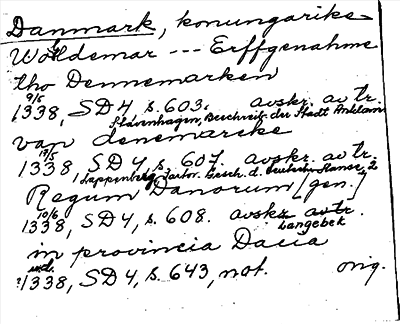 Danmark, konungarike
Woldemar --- Erffgenahme
tho Dennemarken
9/5
1338, SD4, s. 603. avskr. av tr.
Stavenhagen, Beschreib. der Stadt Anklam
van denemarcke
17/5
1338, SD4, s. 607. avskr. av tr.
Lappenberg, Gesch. d. Deutschen Hanse, 2
Regum Danorum (gen.)
10/6
1338, SD4, s. 608. avskr. av tr.
Langebek
in provincia Dacia
u.d.
?1338, SD4, s. 643, not. orig.